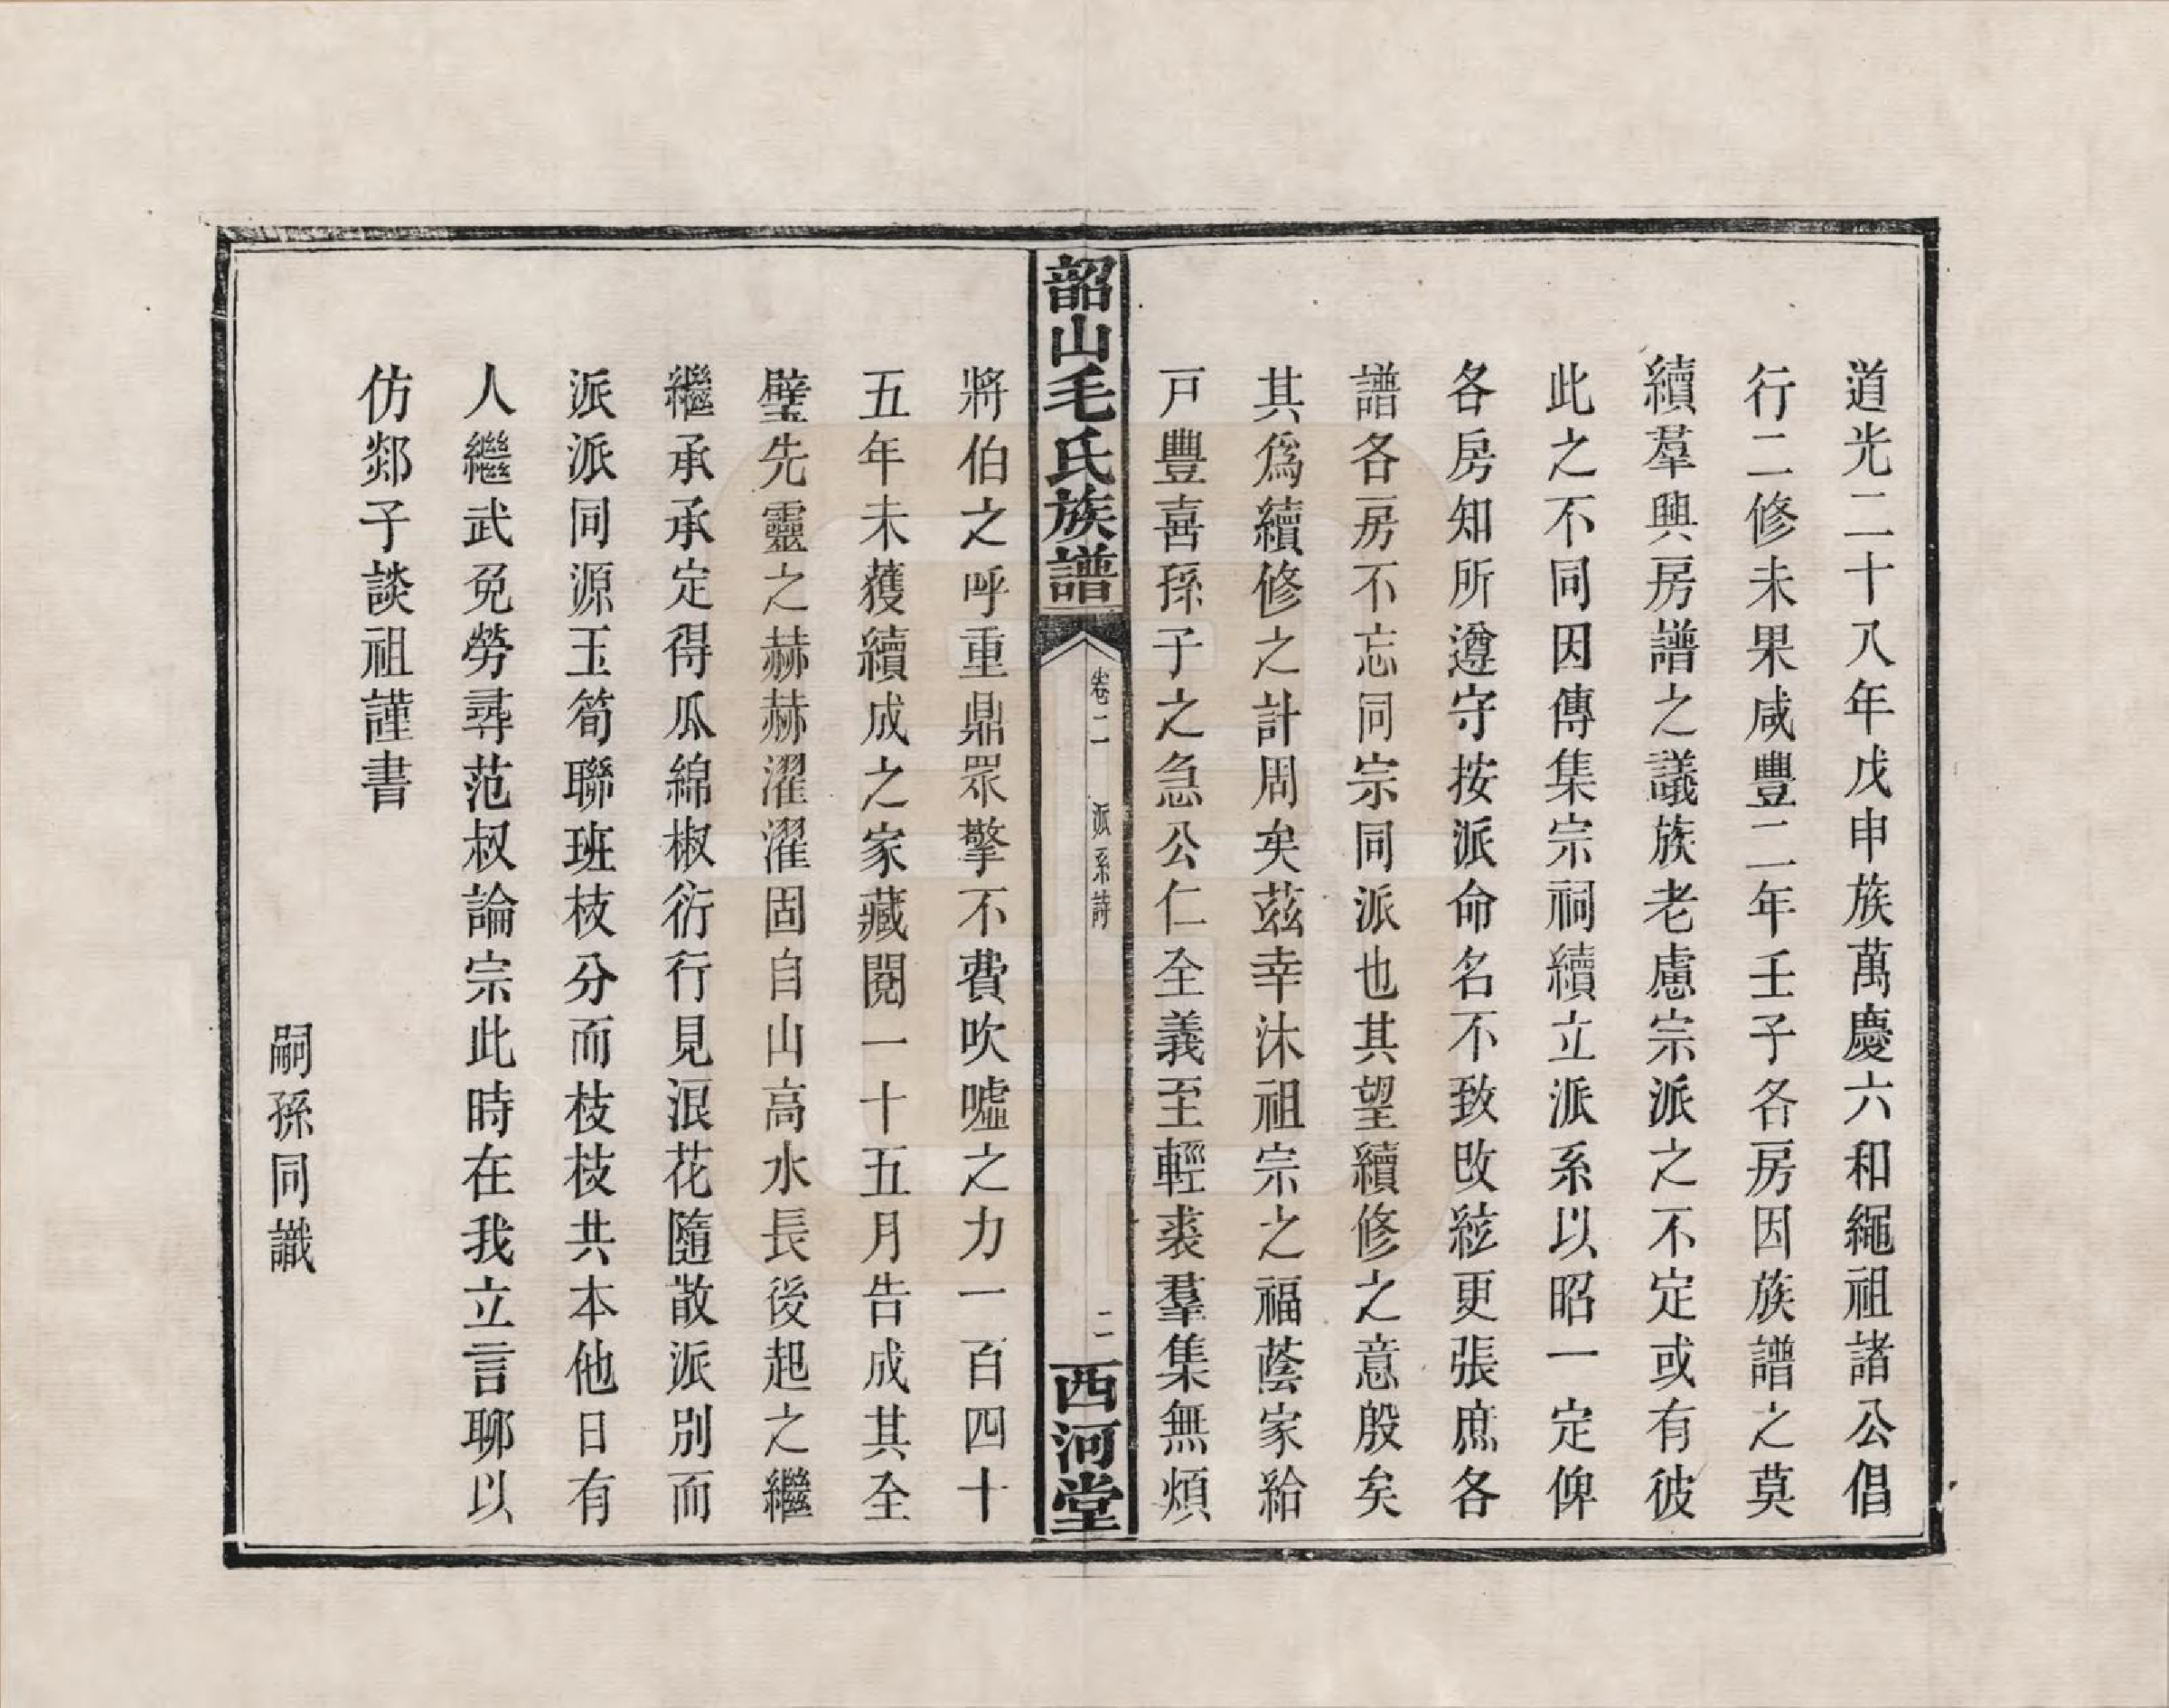 道光二十八年戊申族萬慶六和繩祖諸公倡
行二修未果咸豐二年壬子各房因族譜之莫
續羣興房譜之議族老慮宗派之不定或有彼
此之不同因傳集宗祠續立派系以昭一定俾
各房知所遵守按派命名不致改絃更張庶各
譜各房不忘同宗同派也其望續修之意殷矣
其爲續修之計周矣兹幸沐祖宗之福蔭家給
戸豐喜孫子之急公仁全義至輕裘羣集無煩
韶山毛氏族譜
卷二 派系詩
二
西河堂
將伯之呼重鼎眾擎不費吹噓之力一百四十
五年未獲續成之家藏閱一十五月告成其全
璧先靈之赫赫濯濯固自山高水長後起之繼
繼承承定得瓜綿椒衍行見浪花隨散派別而
派派同源玉筍聯班枝分而枝枝共本他日有
人繼武免勞尋范叔論宗此時在我立言聊以
仿郯子談祖謹書
嗣孫同識